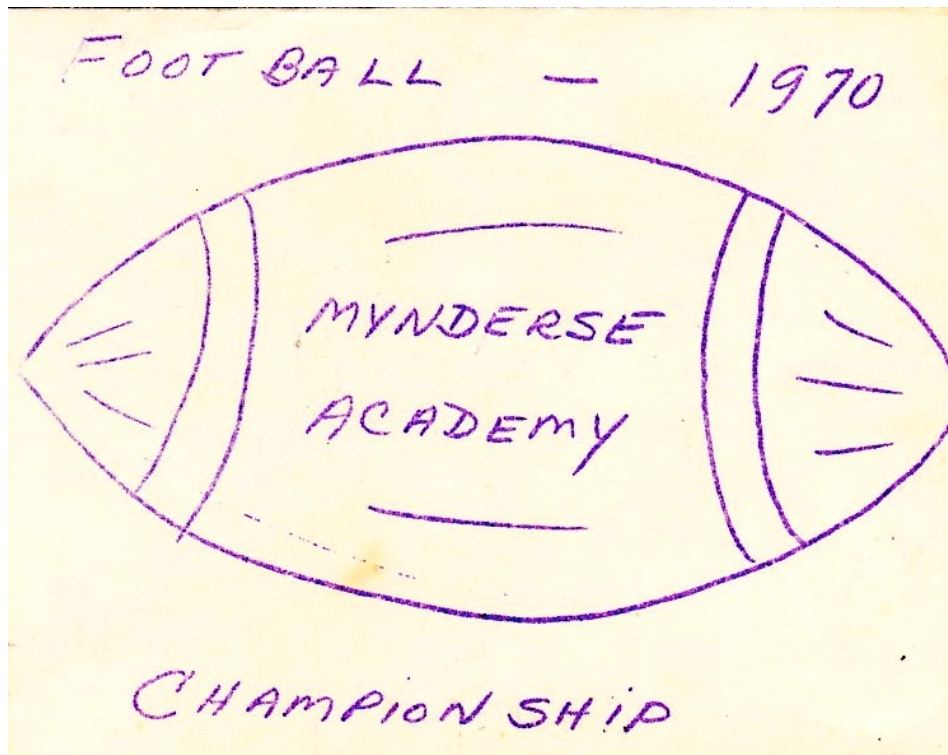 FOOTBALL — 1970
MYNDERSE
ACADEMY
CHAMPIONSHIP